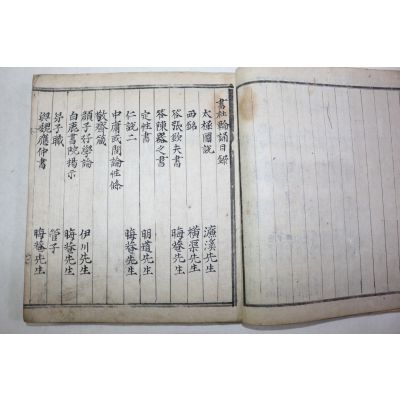 書社輪誦目錄
太極圖說 濂溪先生
西銘 橫渠先生
答張欽夫書 晦菴先生
答陳器之書
定性書 明道先生
仁說二 晦菴先生
中庸或問論性條
敬齋箴 晦菴先生
顔子好學論 伊川先生
白鹿書院揭示 晦菴先生
弟子職 管子
與魏應仲書 晦菴先生